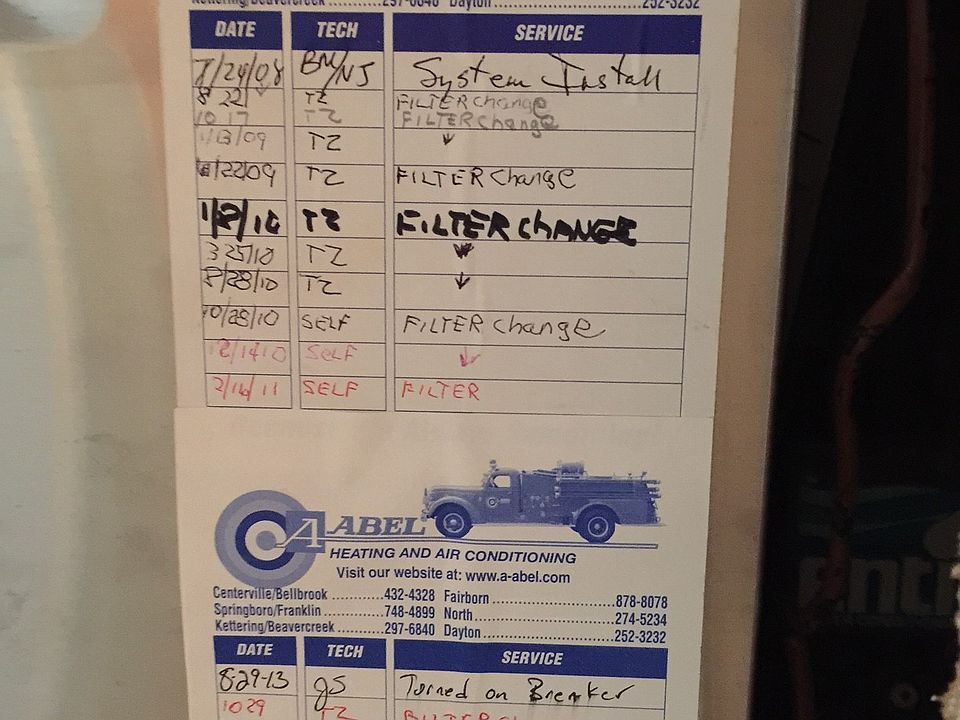 Kettering/Beavercreek ..........297-6840 Dayton ..............................252-3232
DATE TECH SERVICE
7/24/08 BM/NJ System Install
8 22 TZ FILTER Change
10 17 TZ FILTER Change
1/13/09 TZ ↓
/22/09 TZ FILTER Change
TZ FILTER CHANGE
3 25/10 TZ ↓
8/28/10 TZ ↓
10/28/10 SELF FILTER Change
12/14/10 SELF ↓
2/16/11 SELF FILTER
A ABEL
HEATING AND AIR CONDITIONING
Visit our website at: www.a-abel.com
Centerville/Bellbrook ............432-4328 Fairborn ..............................878-8078
Springboro/Franklin ............748-4899 North ..................................274-5234
Kettering/Beavercreek ..........297-6840 Dayton ..............................252-3232
DATE TECH SERVICE
8-29-13 JS Turned on Breaker
10 29 TZ